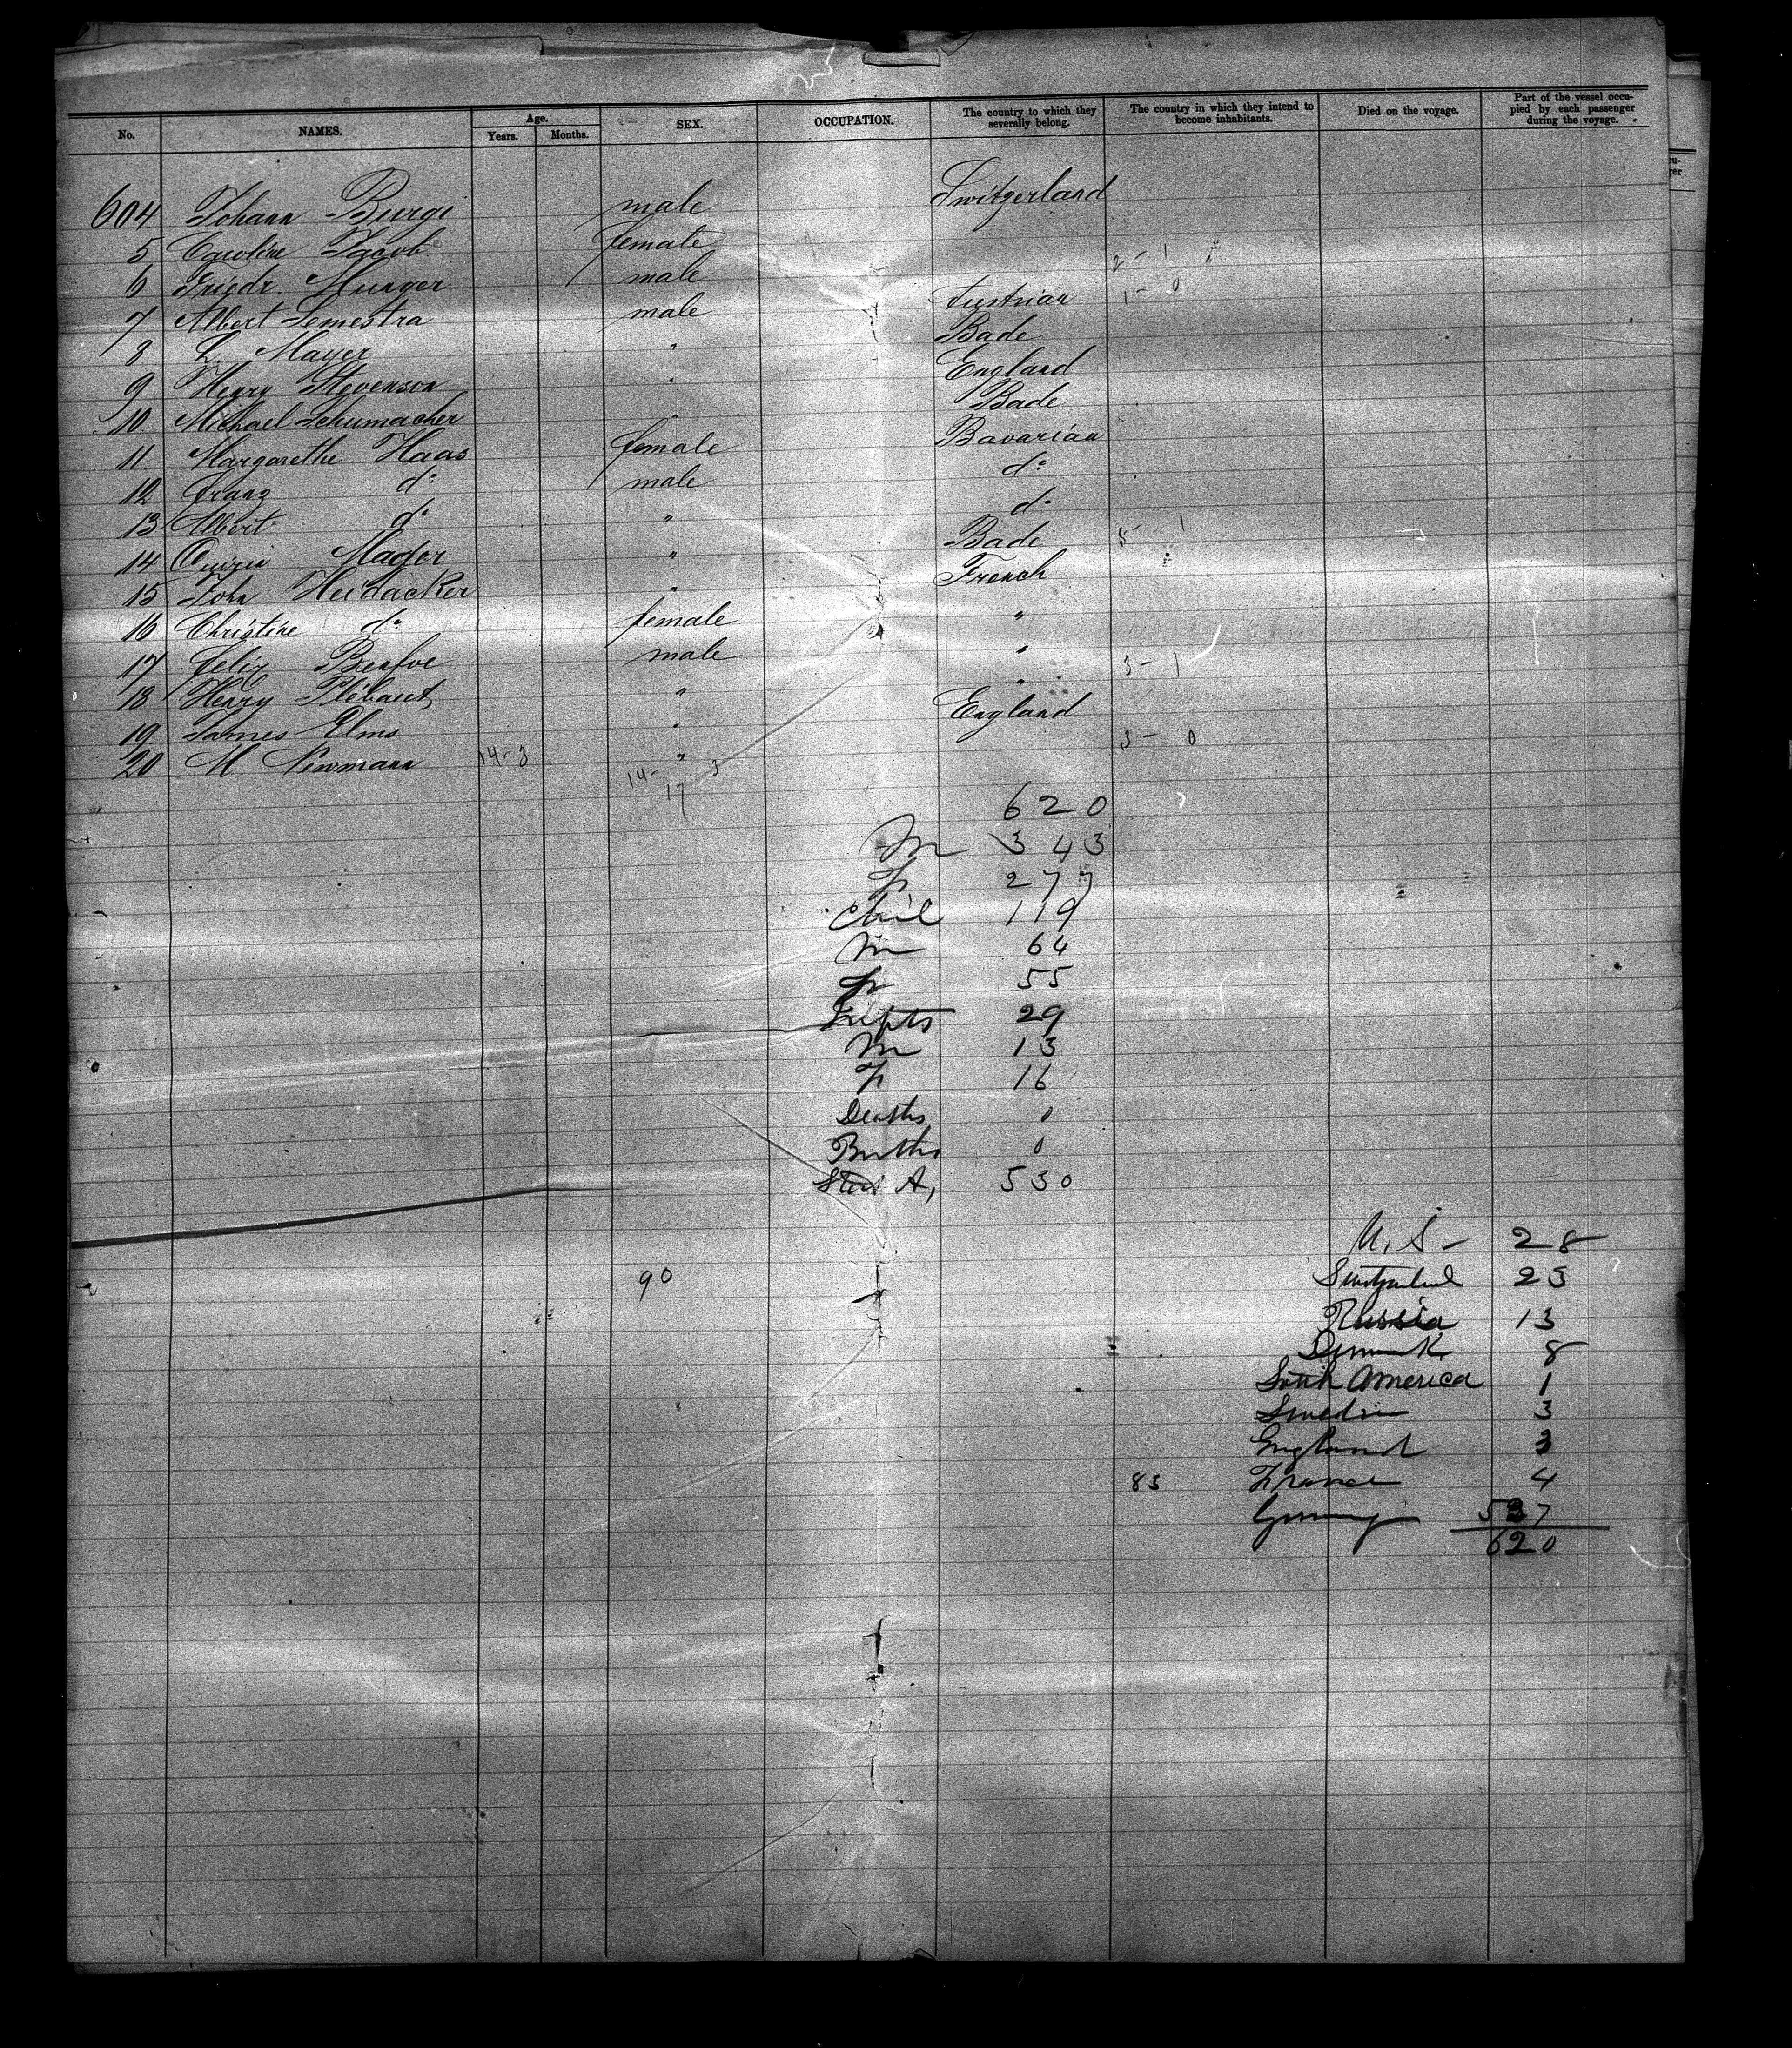 No. NAMES. Age. Years. Months. SEX. OCCUPATION. The country to which they severally belong. The country in which they intend to become inhabitants. Died on the voyage. Part of the vessel occupied by each passenger during the voyage.
604 Johann Burgi male Switzerland
5 Caroline Jacob female
6 Friedr. Munger male 2 - 1
7 Albert Semestra male Austrian 1 - 0
8 L. Mayer " Bade
9 Henry Stevenson " England
10 Michael Schumacher " Bade
11 Margarethe Haas female Bavarian
12 Franz do male do
13 Albert do " do
14 Mader " Bade 5 - 1
15 John Heidacker " French
16 Christine do female "
17 Felix male "
18 Henry " " 3 - 1
19 James Elms " England
20 M Newmann 14-3 " 3 - 0
14- 3
17
620
M 343
F 277
Chil 119
M 64
F 55
29
M 13
F 16
Deaths 0
Births 0
A, 530
U. S - 28
90 Switzerland 23
Russia 13
Denmark 8
South America 1
Sweden 3
England 3
83 France 4
Germany 537
620